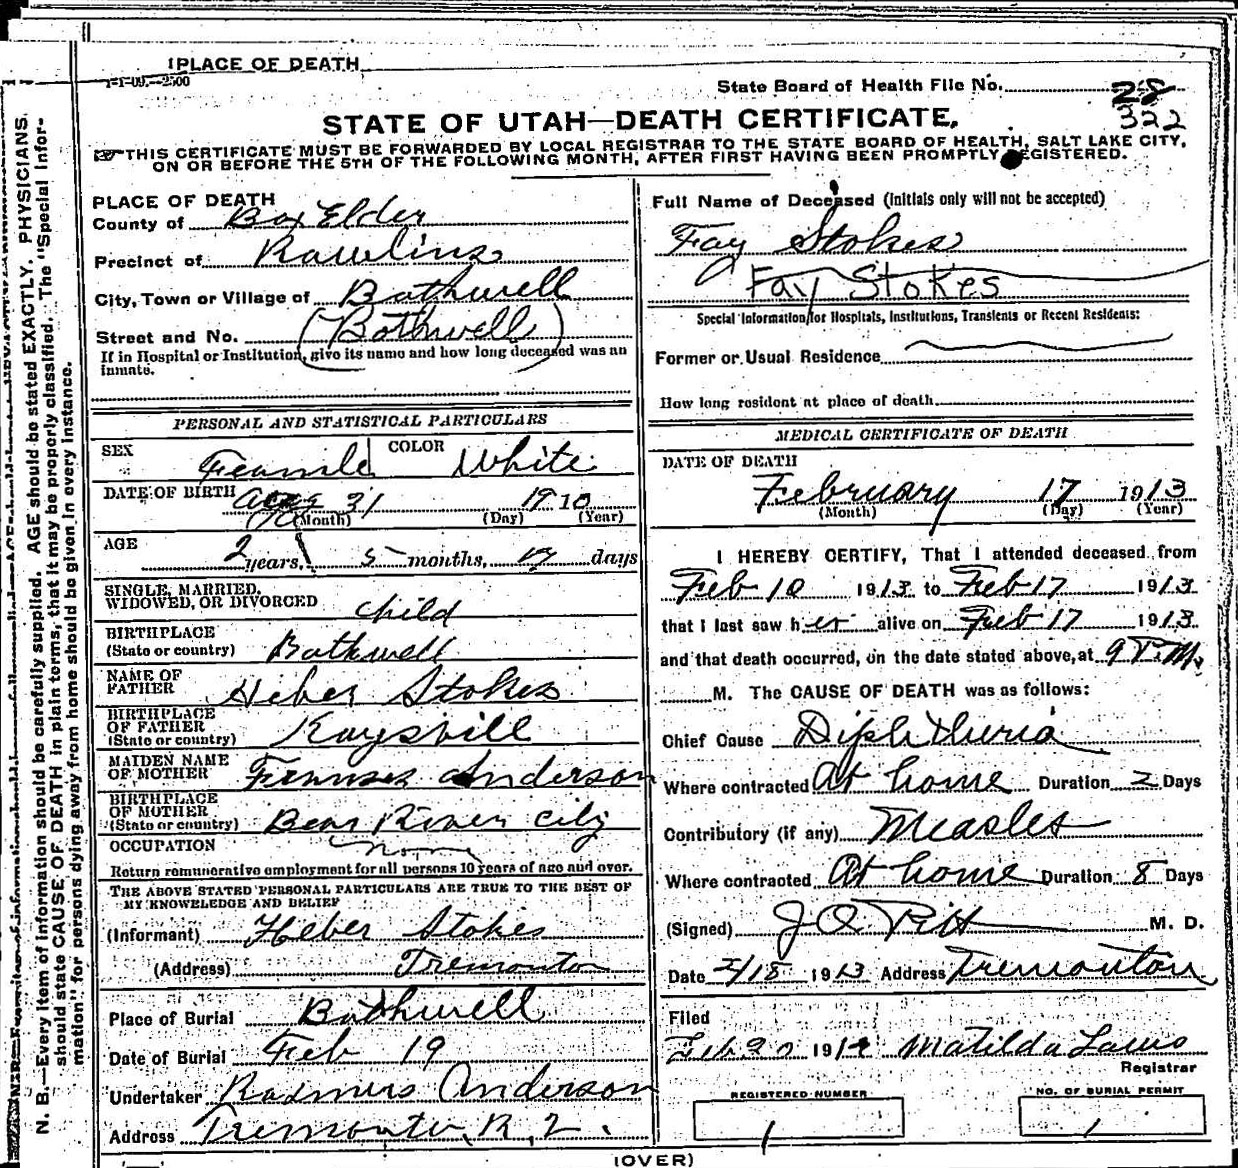 PLACE OF DEATH
1-1-09.—2500
State Board of Health File No. 28
322
STATE OF UTAH—DEATH CERTIFICATE.
THIS CERTIFICATE MUST BE FORWARDED BY LOCAL REGISTRAR TO THE STATE BOARD OF HEALTH, SALT LAKE CITY,
ON OR BEFORE THE 5TH OF THE FOLLOWING MONTH, AFTER FIRST HAVING BEEN PROMPTLY REGISTERED.
PLACE OF DEATH
County of Box Elder
Precinct of Rawlins
City, Town or Village of Bothwell
Street and No. (Bothwell)
If in Hospital or Institution, give its name and how long deceased was an
inmate.
PERSONAL AND STATISTICAL PARTICULARS
SEX Feamle COLOR White
DATE OF BIRTH Aug 31 1910
(Month) (Day) (Year)
AGE 2 years, 5 months, 17 days
SINGLE, MARRIED,
WIDOWED, OR DIVORCED child
BIRTHPLACE
(State or country) Bothwell
NAME OF
FATHER Heber Stokes
BIRTHPLACE
OF FATHER
(State or country) Kaysvill
MAIDEN NAME
OF MOTHER Anderson
BIRTHPLACE
OF MOTHER
(State or country) Bear River City
OCCUPATION none
Return remunerative employment for all persons 10 years of age and over.
THE ABOVE STATED PERSONAL PARTICULARS ARE TRUE TO THE BEST OF
MY KNOWLEDGE AND BELIEF
(Informant) Heber Stokes
(Address) Tremonton
Place of Burial Bothwell
Date of Burial Feb 19
Undertaker Anderson
Address Tremonton, R, 2.
Full Name of Deceased (Initials only will not be accepted)
Fay Stokes
Fay Stokes
Special Information for Hospitals, Institutions, Transients or Recent Residents:
Former or Usual Residence
How long resident at place of death
MEDICAL CERTIFICATE OF DEATH
DATE OF DEATH
February 17 1913
(Month) (Day) (Year)
I HEREBY CERTIFY, That I attended deceased from
Feb 10 1913 to Feb 17 1913
that I last saw her alive on Feb 17 1913
and that death occurred, on the date stated above, at 9 P.M.
M. The CAUSE OF DEATH was as follows:
Chief Cause Diphtheria
Where contracted At home Duration 2 Days
Contributory (if any) Measles
Where contracted At home Duration 8 Days
(Signed) M. D.
Date 2/18 1913 Address Tremonton
Filed
Feb 20 191 Matilda
Registrar
REGISTERED NUMBER
1
NO. OF BURIAL PERMIT
1
(OVER)
N. B.—Every item of information should be carefully supplied. AGE should be stated EXACTLY. PHYSICIANS
should state CAUSE OF DEATH in plain terms, that it may be properly classified. The "Special Infor-
mation" for persons dying away from home should be given in every instance.